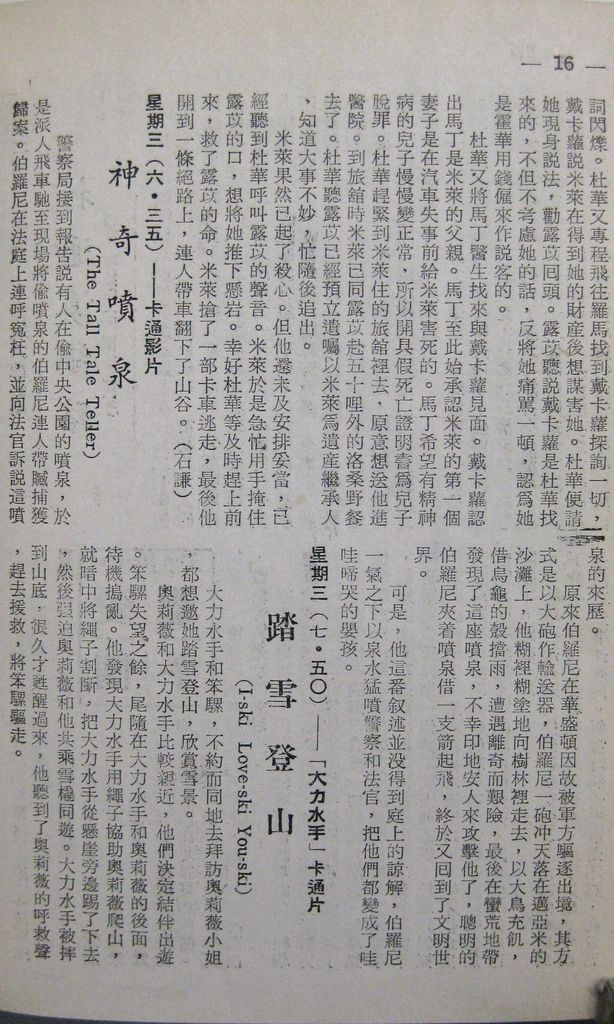 — 16 —
詞閃爍。杜華又專程飛往羅馬找到戴卡蘿探詢一切，
戴卡蘿説米萊在得到她的財產後想謀害她。杜華便請
她現身説法，勸露苡囘頭。露苡聽説戴卡蘿是杜華找
來的，不但不考慮她的話，反將她痛罵一頓，認爲她
是霍華用錢僱來作説客的。
杜華又將馬丁醫生找來與戴卡蘿見面。戴卡蘿認
出馬丁是米萊的父親。馬丁至此始承認米萊的第一個
妻子是在汽車失事前給米萊害死的。馬丁希望有精神
病的兒子慢慢變正常，所以開具假死亡證明書爲兒子
脫罪。杜華趕緊到米萊住的旅舘裡去，原意想送他進
醫院。到旅舘時米萊已同露苡赴五十哩外的洛桑野餐
去了。杜華聽露苡已經預立遺囑以米萊爲遺産繼承人
，知道大事不妙，忙隨後追出。
米萊果然已起了殺心。但他還未及安排妥當，已
經聽到杜華呼叫露苡的聲音。米萊於是急忙用手掩住
露苡的口，想將她推下懸岩。幸好杜華等及時趕上前
來，救了露苡的命。米萊搶了一部卡車逃走，最後他
開到一條絕路上，連人帶車翻下了山谷。（石謙）
星期三（六・三五）——卡通影片
神奇噴泉
(The Tall Tale Teller)
警察局接到報告説有人在偸中央公園的噴泉，於
是派人飛車馳至現場將偸噴泉的伯羅尼連人帶贓捕獲
歸案。伯羅尼在法庭上連呼寃枉，並向法官訴説這噴
泉的來歷。
原來伯羅尼在華盛頓因故被軍方驅逐出境，其方
式是以大砲作輸送器，伯羅尼一砲冲天落在邁亞米的
沙灘上，他糊裡糊塗地向樹林裡走去，以大鳥充飢，
借烏龜的殼擋雨，遭遇離奇而艱險，最後在蠻荒地帶
發現了這座噴泉，不幸印地安人來攻擊他了，聰明的
伯羅尼夾着噴泉借一支箭起飛，終於又囘到了文明世
界。
可是，他這番叙述並没得到庭上的諒解，伯羅尼
一氣之下以泉水猛噴警察和法官，把他們都變成了哇
哇啼哭的嬰孩。
星期三（七・五〇）——「大力水手」卡通片
踏雪登山
(I-ski Love-ski You-ski)
大力水手和笨騾，不約而同地去拜訪奧莉薇小姐
，都想邀她踏雪登山，欣賞雪景。
奧莉薇和大力水手比較親近，他們決定結伴出遊
。笨騾失望之餘，尾隨在大力水手和奧莉薇的後面，
待機搗亂。他發現大力水手用繩子協助奧莉薇爬山，
就暗中將繩子割斷，把大力水手從懸崖旁邊踢了下去
，然後强迫奧莉薇和他共乘雪橇同遊。大力水手被摔
到山底，很久才甦醒過來，他聽到了奧莉薇的呼救聲
，趕去援救，將笨騾驅走。